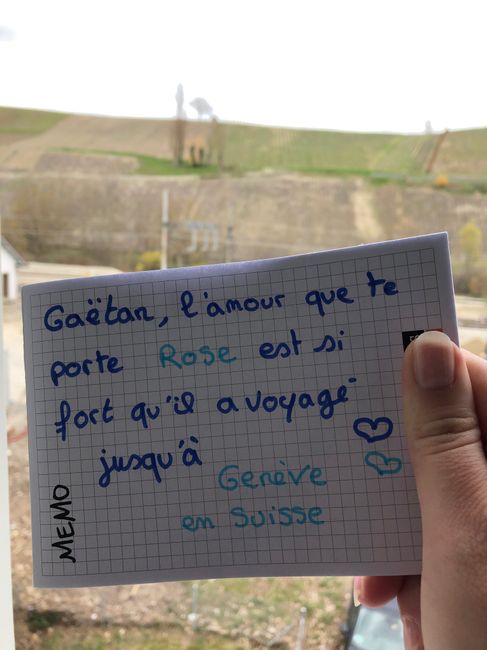 Gaëtan, l'amour que te
porte Rose est si
fort qu'il a voyagé
jusqu'à
Genève
en Suisse
MEMO